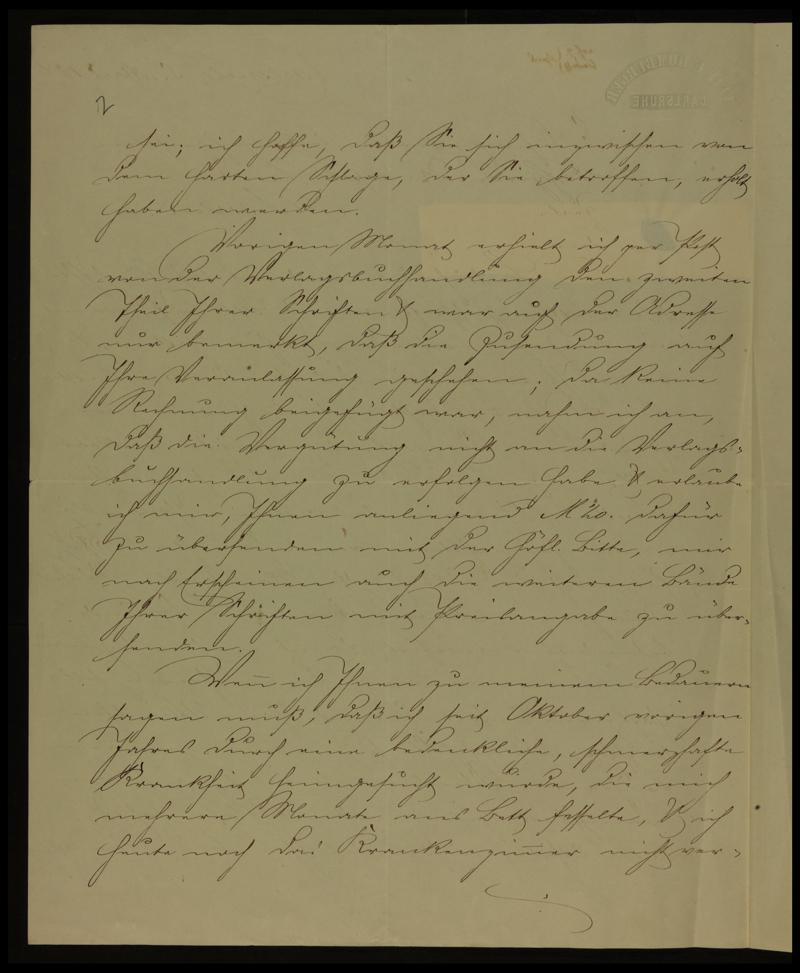 2
sei; ich hoffe, daß Sie sich inzwischen von
dem harten Schlage, der Sie betroffen, erholt
haben werden.
Vorigen Monat erhielt ich per Post
von der Verlagsbuchhandlung den zweiten
Theil Ihrer Schriften & war auf der Adresse
nur bemerkt, daß die Zusendung auf
Ihre Veranlassung geschehen; da keine
Rechnung beigefügt war, nahm ich an,
daß die Vergütung nicht an die Verlags-
buchhandlung zu erfolgen habe & erlaube
ich mir, Ihnen anliegend M 20. dafür
zu übersenden mit der höfl. Bitte, mir
nach Erscheinen auch die weiteren Bände
Ihrer Schriften mit Preisangabe zu über-
senden.
Wenn ich Ihnen zu meinem Bedauern
sagen muß, daß ich seit Oktober vorigen
Jahres durch eine bedenkliche, schmerzhafte
Krankheit heimgesucht wurde, die mich
mehrere Monate ans Bett fesselte, & ich
heute noch das Krankenzimmer nicht ver-